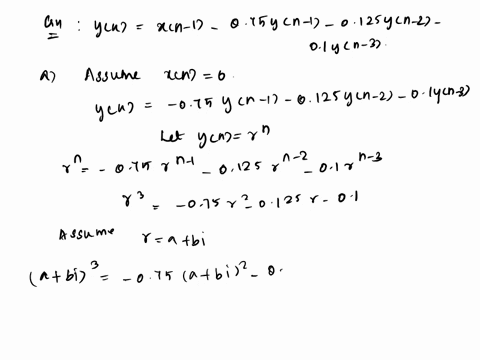 Gn : y(n) = x(n-1) - 0.75y(n-1) - 0.125y(n-2) -
0.1y(n-3).
A) Assume x(n) = 0.
y(n) = -0.75 y(n-1) - 0.125y(n-2) - 0.1y(n-3)
Let y(n) = r^n
r^n = - 0.75 r^{n-1} - 0.125 r^{n-2} - 0.1 r^{n-3}
r^3 = -0.75 r^2 - 0.125 r - 0.1
Assume r = a + bi
(a+bi)^3 = -0.75 (a+bi)^2 - 0.